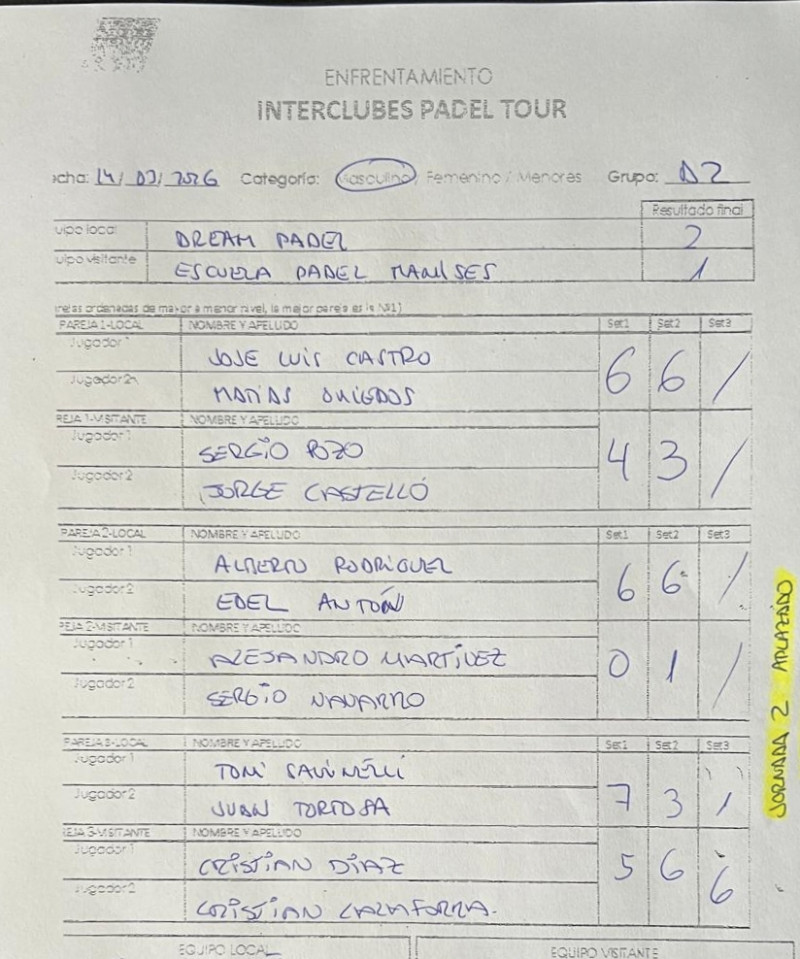 ENFRENTAMIENTO
INTERCLUBES PADEL TOUR
cha: 14/03/2026 Categoría: Masculino / Femenino / Menores Grupo: D2
Resultado final
uipo local DREAM PADEL 2
uipo visitante ESCUELA PADEL MANISES 1
rejas ordenadas de mayor a menor nivel, la mejor pareja es la Nº1)
PAREJA 1-LOCAL NOMBRE Y APELLIDO Set1 Set2 Set3
Jugador 1 JOSE LUIS CASTRO
6 6 /
Jugador 2 MATÍAS
REJA 1-VISITANTE NOMBRE Y APELLIDO
Jugador 1 SERGIO POZO
4 3 /
Jugador 2 JORGE CASTELLÓ
PAREJA 2-LOCAL NOMBRE Y APELLIDO Set1 Set2 Set3
Jugador 1 ALBERTO RODRIGUEZ
6 6 /
Jugador 2 EDEL ANTÓN
EJA 2-VISITANTE NOMBRE Y APELLIDO
Jugador 1 ALEJANDRO MARTÍNEZ
0 1 /
Jugador 2 SERGIO NAVARRO
PAREJA 3-LOCAL NOMBRE Y APELLIDO Set1 Set2 Set3
Jugador 1 TONI SAVINELLI
7 3 1
Jugador 2 JUAN TORTOSA
EJA 3-VISITANTE NOMBRE Y APELLIDO
Jugador 1 CRISTIAN DÍAZ
5 6 6
Jugador 2 CRISTIAN
EQUIPO LOCAL EQUIPO VISITANTE
JORNADA 2 APLAZADO